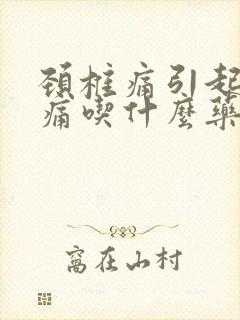 頸椎痛引起
痛喫什麼藥
窩在山村